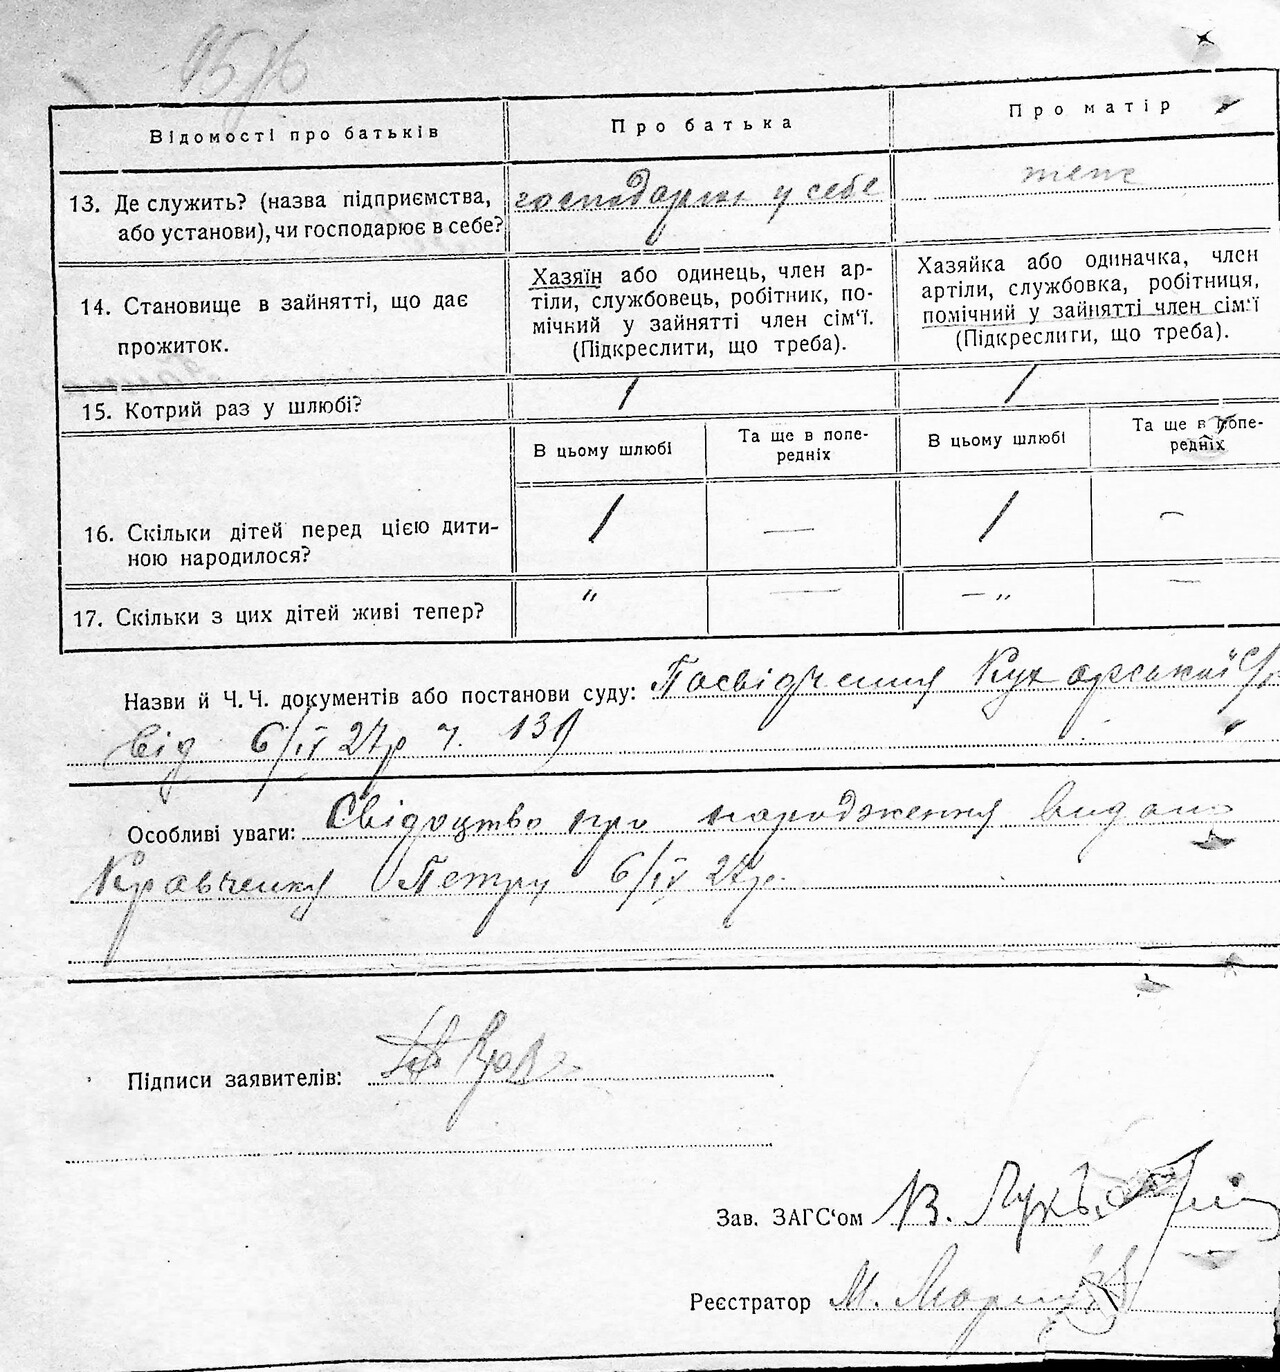 Відомості про батьків
Про батька
Про матір
13. Де служить? (назва підприємства,
або установи), чи господарює в себе?
господарює у себе
теж
14. Становище в зайнятті, що дає
прожиток.
Хазяїн або одинець, член ар-
тіли, службовець, робітник, по-
мічний у зайнятті член сім'ї.
(Підкреслити, що треба).
Хазяйка або одиначка, член
артіли, службовка, робітниця,
помічний у зайнятті член сім'ї
(Підкреслити, що треба).
15. Котрий раз у шлюбі?
1
1
В цьому шлюбі
Та ще в попе-
редніх
В цьому шлюбі
Та ще в попе-
редніх
16. Скільки дітей перед цією дити-
ною народилося?
1
—
1
—
17. Скільки з цих дітей живі тепер?
"
—
— "
—
Назви й Ч.Ч. документів або постанови суду: Посвідчення Кухарської С/р
від 6/IV 27р ч. 139
Особливі уваги: Свідоцтво про народження видано
Кравченку Петру 6/IV 27р.
Підписи заявителів: Крав
Зав. ЗАГС'ом В.
Реєстратор М.